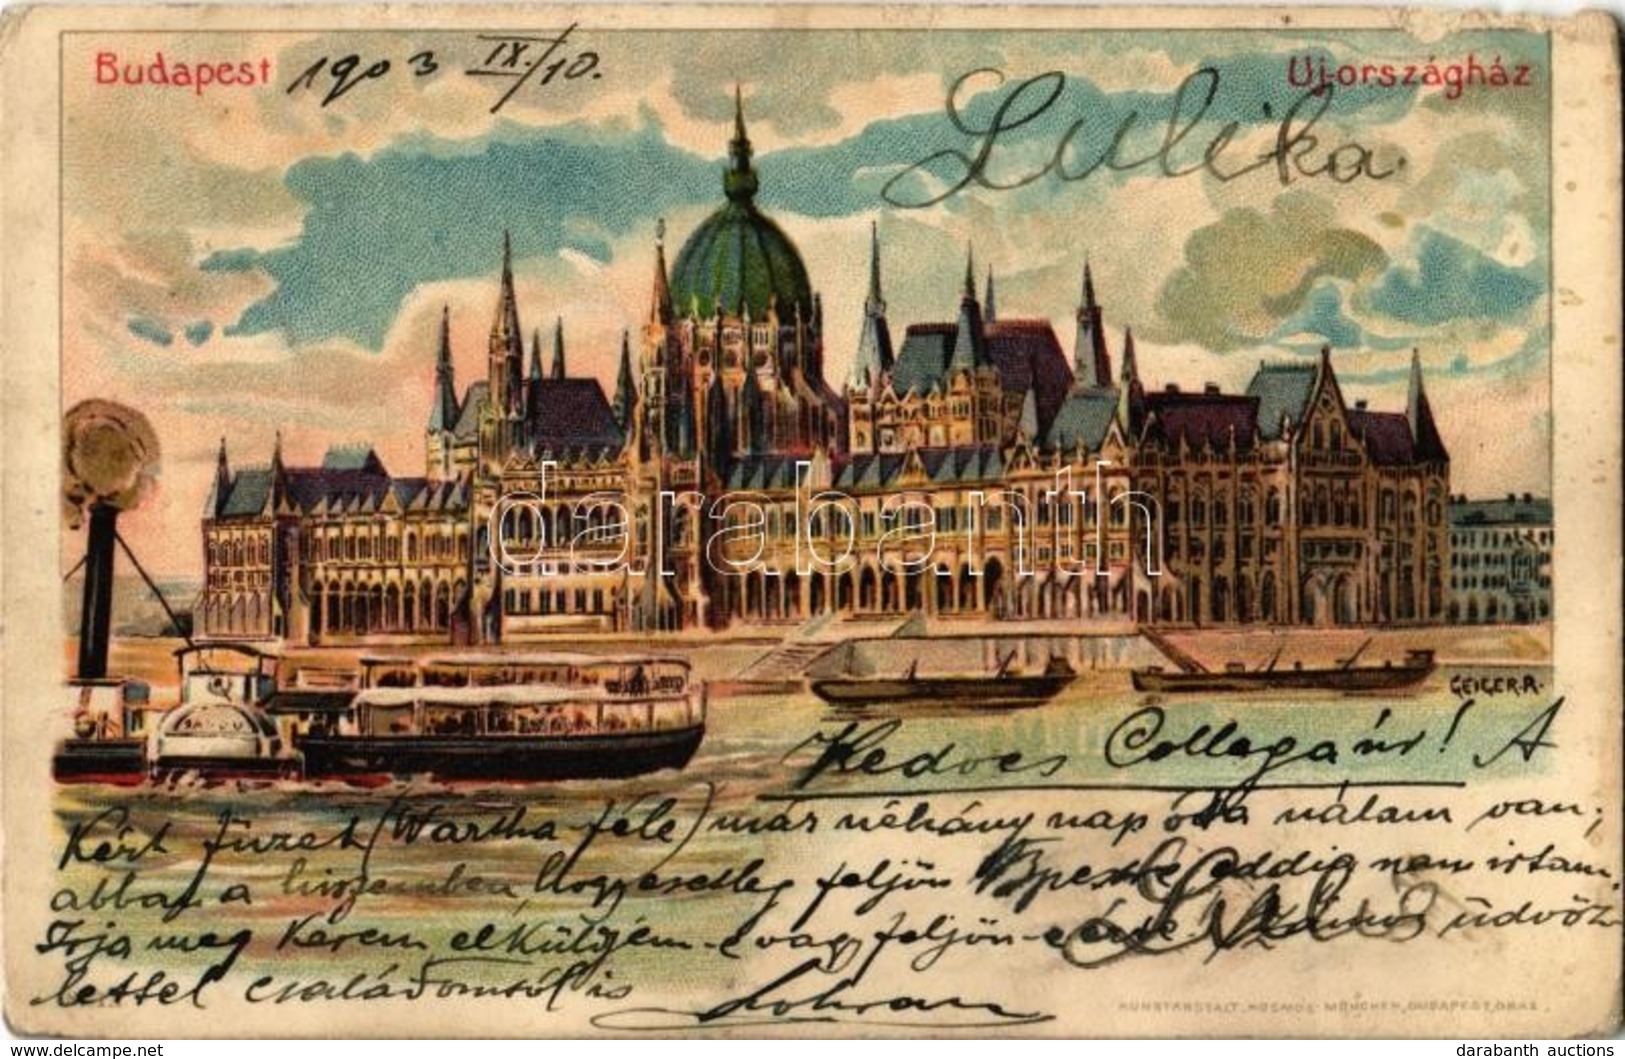 Budapest 1903 IX./10. Uj-országház
Lulika
darabanth
GEIGER.R.
Kedves Collega úr! A
Kért füzet (Wartha-féle) már néhány nap óta nálam van;
abban a hiszemben, hogy esetleg feljön Bpestre eddig nem irtam.
Irja meg kérem elküldjem-e vagy feljön-e érte. Számos üdvöz-
lettel családomtól is
KUNSTANSTALT KOSMOS MÜNCHEN, BUDAPEST, GRAZ.
delcampe.net darabanth auctions